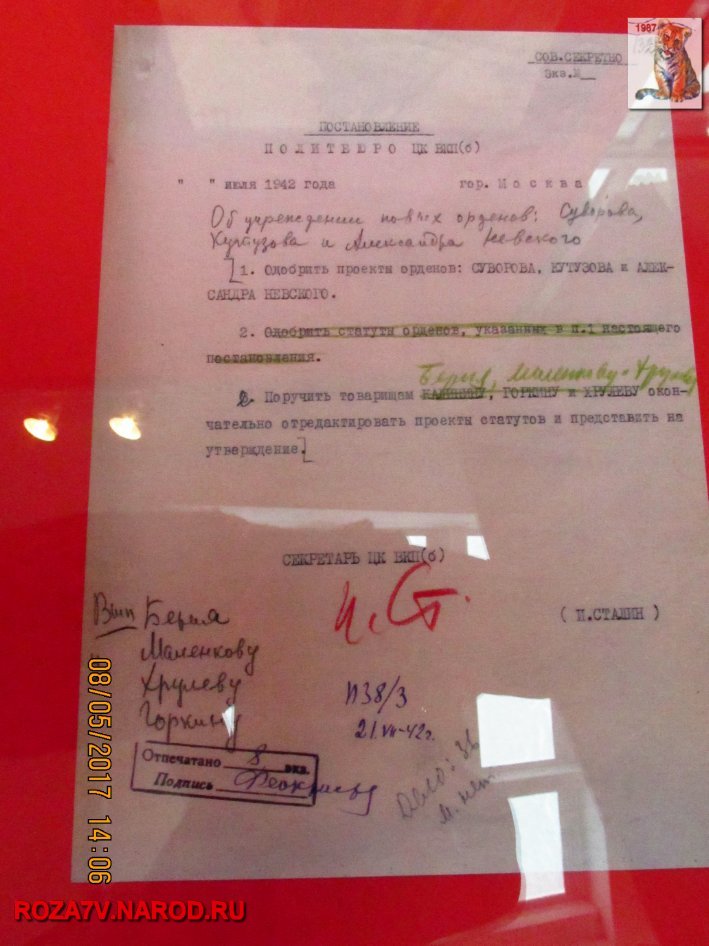 1987
СОВ.СЕКРЕТНО
Экз.№__
ПОСТАНОВЛЕНИЕ
ПОЛИТБЮРО ЦК ВКП(б)
" " июля 1942 года гор. Москва
Об учреждении новых орденов: Суворова,
Кутузова и Александра Невского
1. Одобрить проекты орденов: СУВОРОВА, КУТУЗОВА и АЛЕК-
САНДРА НЕВСКОГО.
2. Одобрить статуты орденов, указанных в п.1 настоящего
постановления.
Берия, Маленкову Хрулеву
2. Поручить товарищам КАЛИНИНУ, ГОРКИНУ и ХРУЛЕВУ окон-
чательно отредактировать проекты статутов и представить на
утверждение.
СЕКРЕТАРЬ ЦК ВКП(б)
И. Ст.
( И.СТАЛИН )
Вып Берия
Маленкову
Хрулеву
Горкину
П38/3
21.VII-42г.
Отпечатано 8 экз.
Подпись
Дело:
08/05/2017 14:06
ROZA7V.NAROD.RU